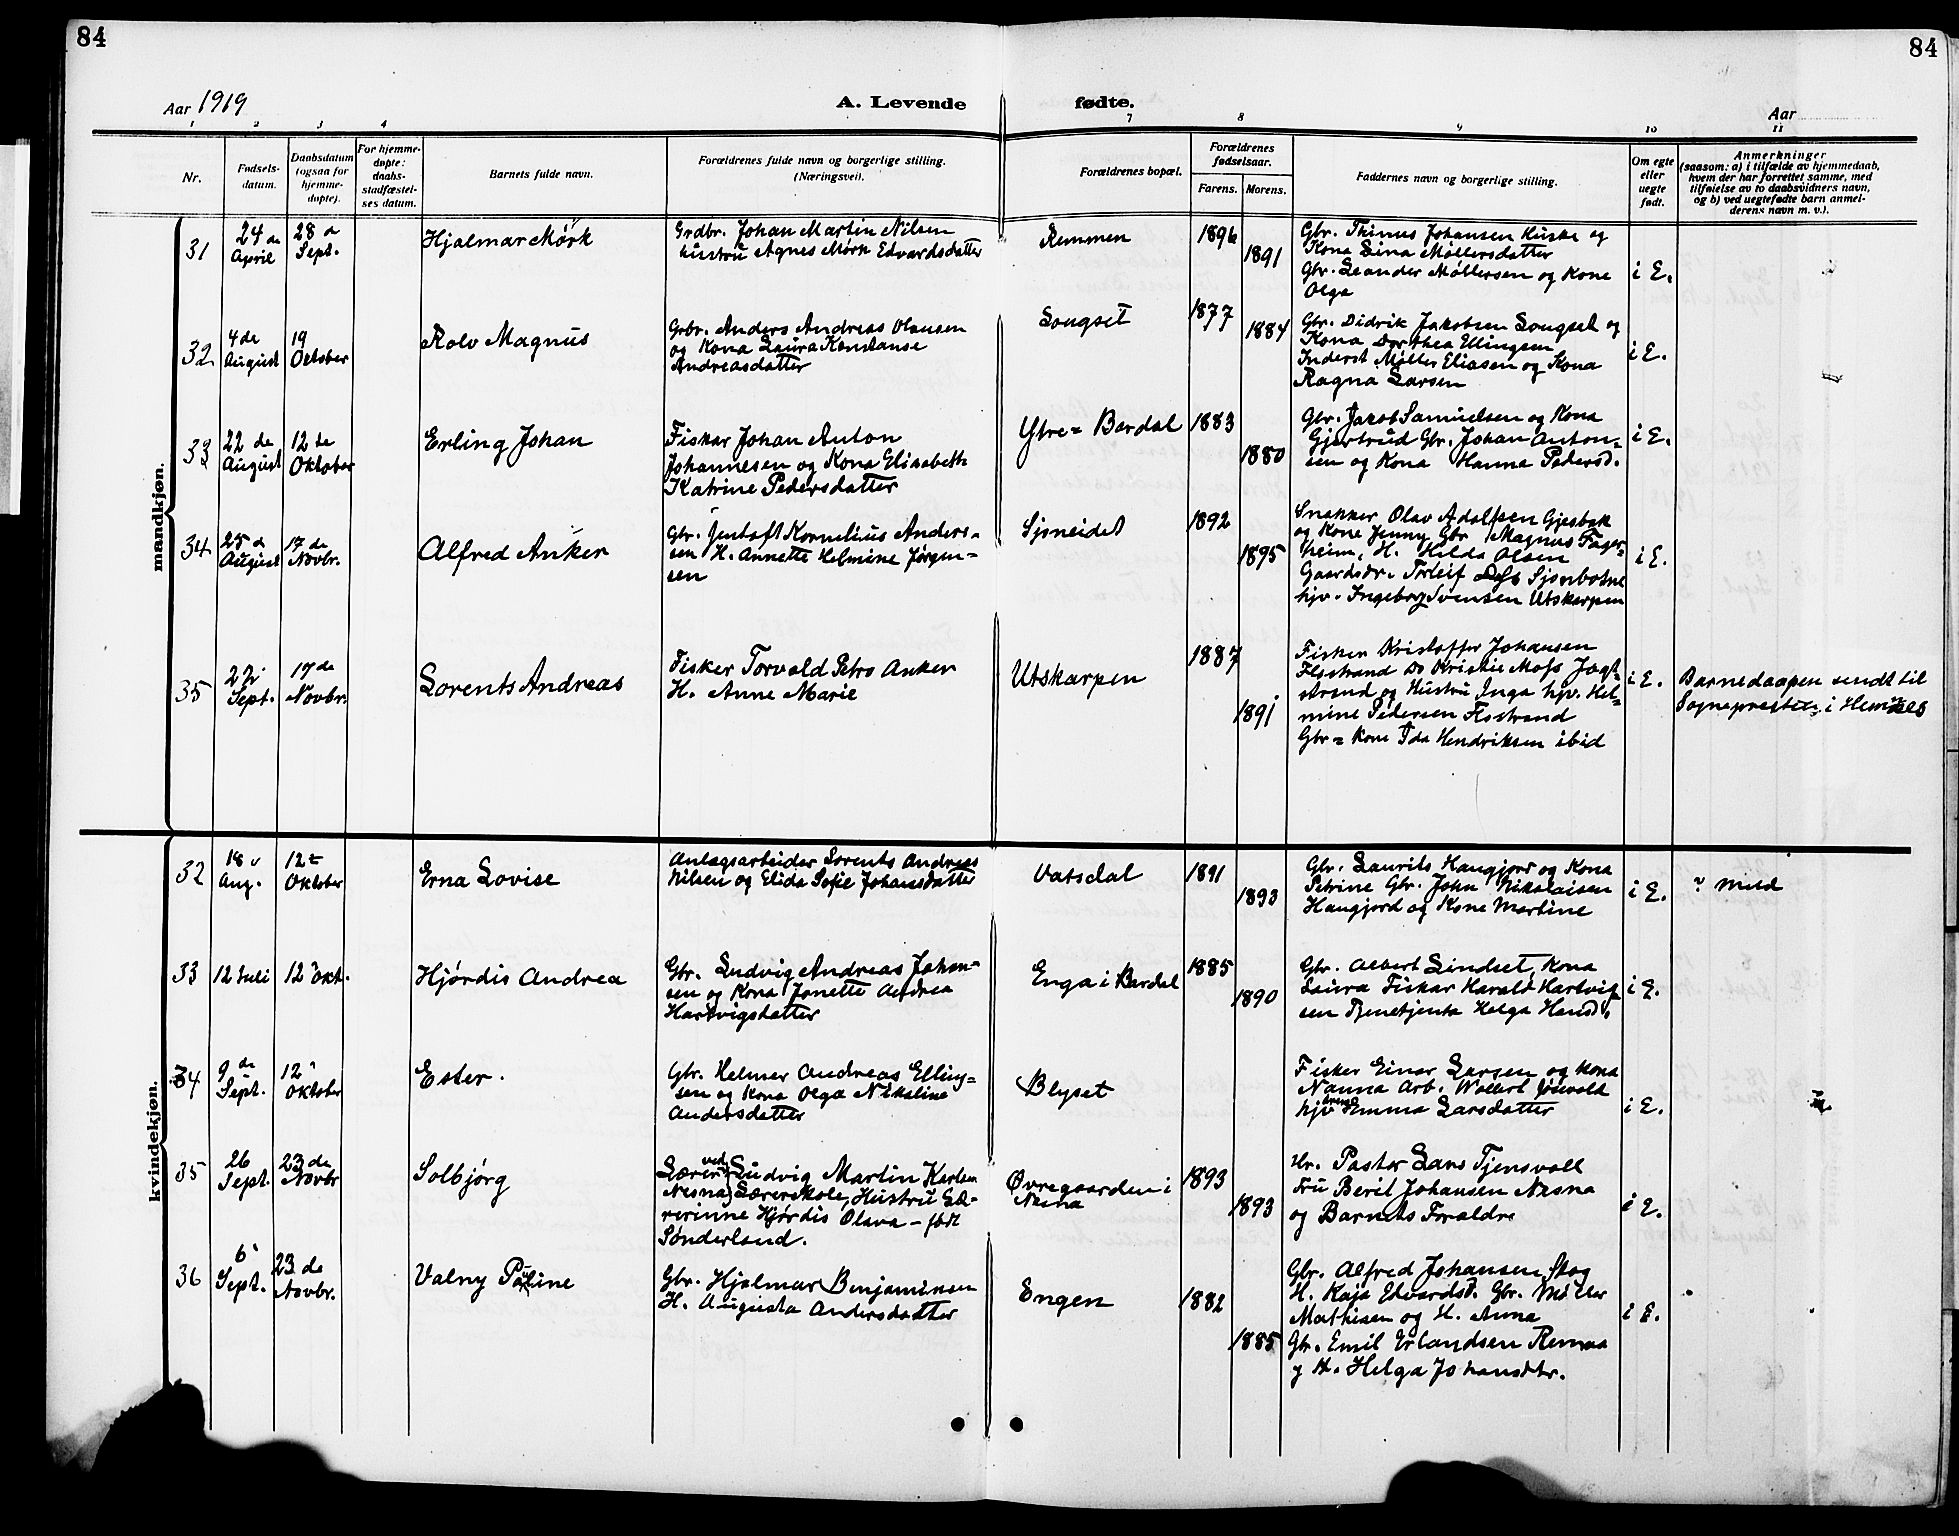 84
84
Aar 1919
A. Levende fødte.
Aar
1 2 3 4 7 8 9 10 11
Nr.
Fødsels-
datum.
Daabsdatum
(ogsaa for
hjemme-
døpte).
For hjemme-
døpte:
daabs-
stadfæstel-
ses datum.
Barnets fulde navn.
Forældrenes fulde navn og borgerlige stilling.
(Næringsvei).
Forældrenes bopæl.
Forældrenes
fødselsaar.
Farens. Morens.
Faddernes navn og borgerlige stilling.
Om egte
eller
uegte
født.
Anmerkninger
(saasom: a) i tilfælde av hjemmedaab,
hvem der har forrettet samme, med
tilføielse av to daabsvidners navn,
og b) ved uegtefødte barn anmel-
derens navn m. v.).
mandkjøn.
31
24 de
April
28 d
Sept.
Hjalmar Mørk
Grdbr. Johan Martin Nilsen
hustru Agnes Mørk Edvardsdatter
Remmen
1896
1891
Gbr. Thinus Johansen Huske og
Kona Lina Møllersdatter
Gbr. Leander Møllersen og Kone
Olga
i E.
32
4 de
August
19
October
Rolv Magnus
Grbr. Anders Andreas Olausen
og Kona Laura Konstanse
Andreasdatter
Songset
1877
1884
Gbr. Didrik Jakobsen Songset og
Kona Dorthea Ellingsen
Inderst Møller Eliasen og Kona
Ragna Larsen
i E.
33
22 de
August
12 te
Oktober
Erling Johan
Fisker Johan Anton
Johannesen og Kona Elisabeth
Katrine Pedersdatter
Ytre= Bardal
1883
1880
Gbr. Jakob Samuelsen og Kona
Gjertrud Gbr. Johan Anton-
sen og Kona Hanna Pedersd.
i E.
34
25 d
August
17 de
Novbr.
Alfred Anker
Gbr. Jentoft Kornelius Anders-
sen H. Annette Helmine Jørgen-
sen
Sjoneidet
1892
1895
Snekker Olav Adolfsen Gjesbak
og Kone Jenny Gbr Magnus Fager-
heim, H. Hilda Olsen
Gaardsdr. Torleif Sjonbotne
hjv. Ingeborg Svensen Utskarpen
i E.
35
22
Sept.
17 de
Novbr.
Lorents Andreas
Fisker Torvald Petro Anker
H. Anne Marie
Utskarpen
1887
1891
Fisker Kristoffer Johansen
Flostrand Do Kristie Mofs Jægt-
strand og Hustru Inga hjv. Hel-
mine Pedersen Flostrand
Gbr= Kone Ida Hendriksen ibid
i E.
Barnedaapen sendt til
Sognepresten i Hemnes
kvindekjøn.
32
18
Aug.
12 te
Oktober
Erna Lovise
Anlægsarbeider Lorents Andreas
Nilsen og Elida Sofie Johansdatter
Vatsdal
1891
1893
Gbr. Laurits Haugjord og Kona
Petrine Gbr. John Nikolaisen
Haugjord og Kone Martine
i E.
33
12 Juli
12 Okt.
Hjørdis Andrea
Gbr. Ludvig Andreas Johan-
sen og Kona Jonette Andrea
Hartvigsdatter
Enga i Bardal
1885
1890
Gbr. Albert Lindset, Kona
Laura Fisker Harald Hartvig
sen Tjenetjenta Helga Hansd.
i E.
34
9 de
Sept.
12
Oktober
Ester.
Gbr. Helmer Andreas Elling-
sen og Kona Olga Nikoline
Andersdatter
Blyset
Fisker Einar Larsen og kona
Nanna Arb. Wollert
hjv Emma Larsdatter
i E.
35
26
Sept.
23 de
Novbr
Solbjørg
Lærer ved Ludvig Martin Karlsen
Nesna Lærerskole, Hustru Læ-
rerinne Hjørdis Olava - født
Sønderland.
Øvregaarden i
Nesna
1893
1893
Hr. Pastor Lars Tjensvoll
Fru Beril Johansen Nesna
og Barnets Foraldre
i E.
36
6
Sept.
23 de
Novbr.
Valny Pauline
Gbr. Hjalmar Benjaminsen
H. Augusta Andersdatter
Engen
1882
1885
Gbr. Alfred Johansen Skog
H. Kaja Edvardsd. Gbr. Møller
Mathisen og H. Anna
Gbr. Emil Erlandsen Remmen
H. Helga Johansdtr.
i E.